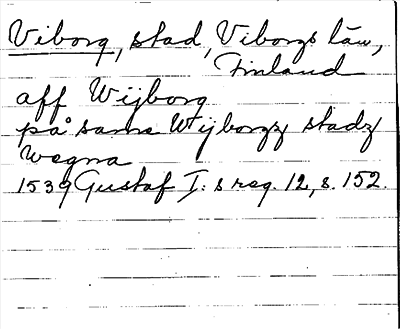 Viborg, stad, Viborgs län,
Finland
aff Wijborg
på same Wijborgz stadz
wegna
1539 Gustaf I:s reg. 12, s. 152.